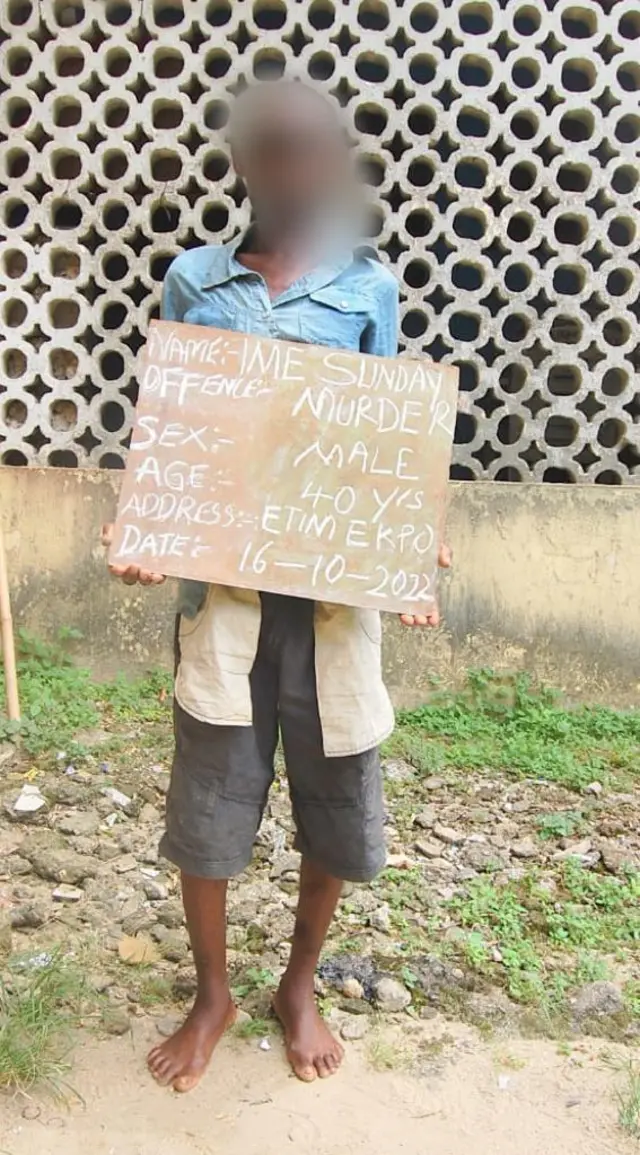 NAME:- IME SUNDAY
OFFENCE:- MURDER
SEX:- MALE
AGE:- 40 Yrs
ADDRESS:- ETIM EKPO
DATE:- 16-10-2022